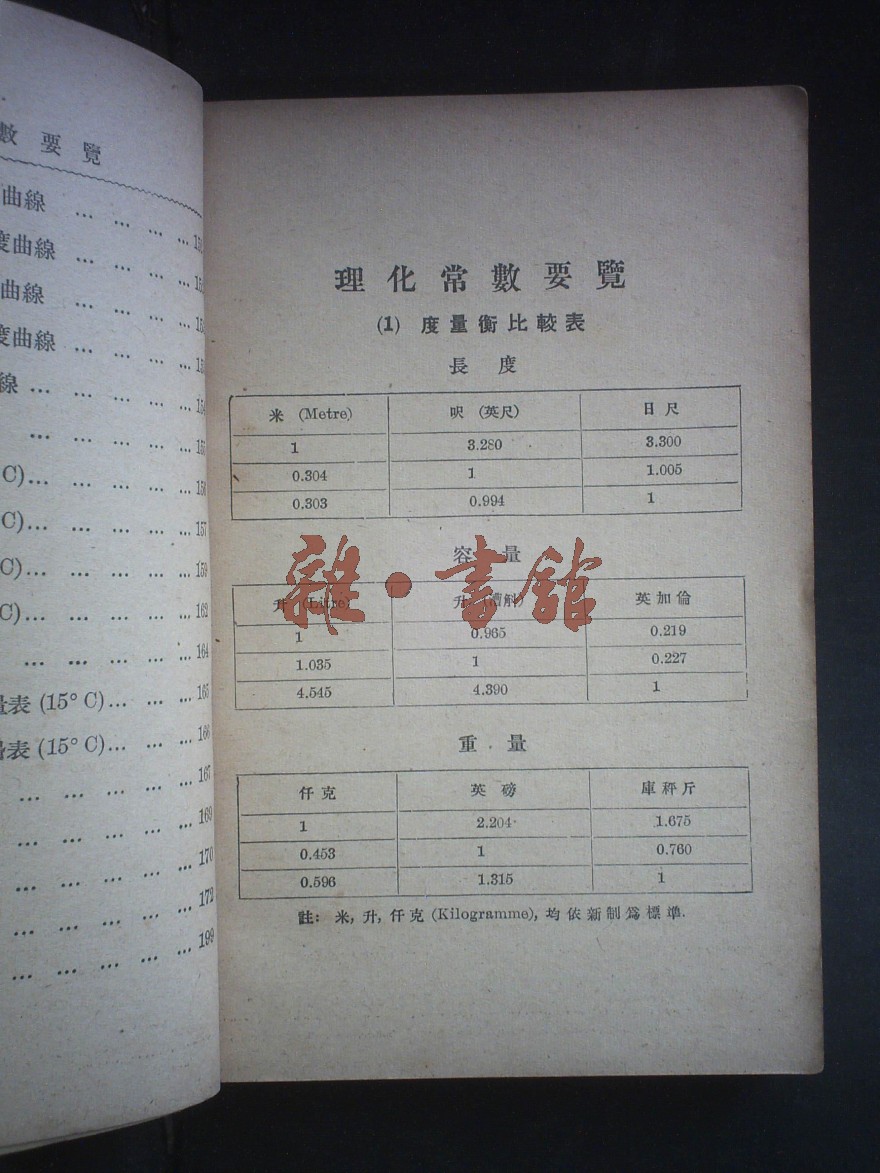 數要覽
曲線 ... ... ... ...
度曲線 ... ... ... ...
曲線 ... ... ... ...
度曲線 ... ... ... ... 153
線 ... ... ... ... ... 154
... ... ... ... ... 155
C)... ... ... ... ... 156
C)... ... ... ... ... 157
C)... ... ... ... ... 159
C)... ... ... ... ... 162
... ... ... ... ... 164
量表 (15° C)... ... ... 165
表 (15° C)... ... ... 166
... ... ... ... ... 167
... ... ... ... ... 169
... ... ... ... ... 170
... ... ... ... ... 172
... ... ... ... ... 199
理化常數要覽
(1) 度量衡比較表
長度
米 (Metre) 呎 (英尺) 日尺
1 3.280 3.300
0.304 1 1.005
0.303 0.994 1
容量
升 (Litre) 升 (漕斛) 英加倫
1 0.965 0.219
1.035 1 0.227
4.545 4.390 1
雜·書館
重量
仟克 英磅 庫秤斤
1 2.204 1.675
0.453 1 0.760
0.596 1.315 1
註: 米, 升, 仟克 (Kilogramme), 均依新制爲標準.